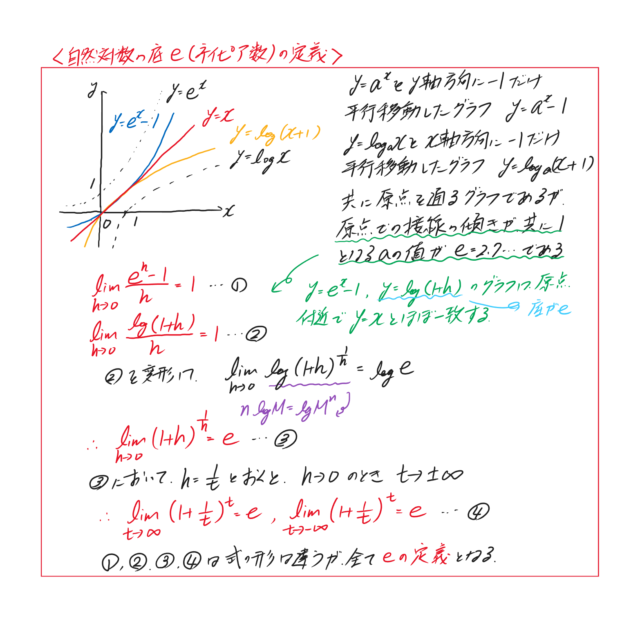 <自然対数の底e(ネイピア数)の定義>
y
y=eˣ
y=eˣ-1
y=x
y=log(x+1)
y=logx
1
0
1
x
y=aˣをy軸方向に-1だけ
平行移動したグラフ y=aˣ-1
y=logₐxをx軸方向に-1だけ
平行移動したグラフ y=logₐ(x+1)
共に原点を通るグラフであるが、
原点での接線の傾きが共に1
となるaの値がe=2.7…である
y=eˣ-1, y=log(1+h)のグラフは原点
付近でy=xとほぼ一致する
底がe
lim_{h→0} (eʰ-1)/h = 1 … ①
lim_{h→0} log(1+h)/h = 1 … ②
②を変形して、 lim_{h→0} log(1+h)^{1/h} = log e
n logM = logMⁿ
∴ lim_{h→0} (1+h)^{1/h} = e … ③
③において、h=1/t とおくと、h→0のとき t→±∞
∴ lim_{t→∞} (1+1/t)^t = e , lim_{t→-∞} (1+1/t)^t = e … ④
①,②,③,④は式の形は違うが、全てeの定義となる。